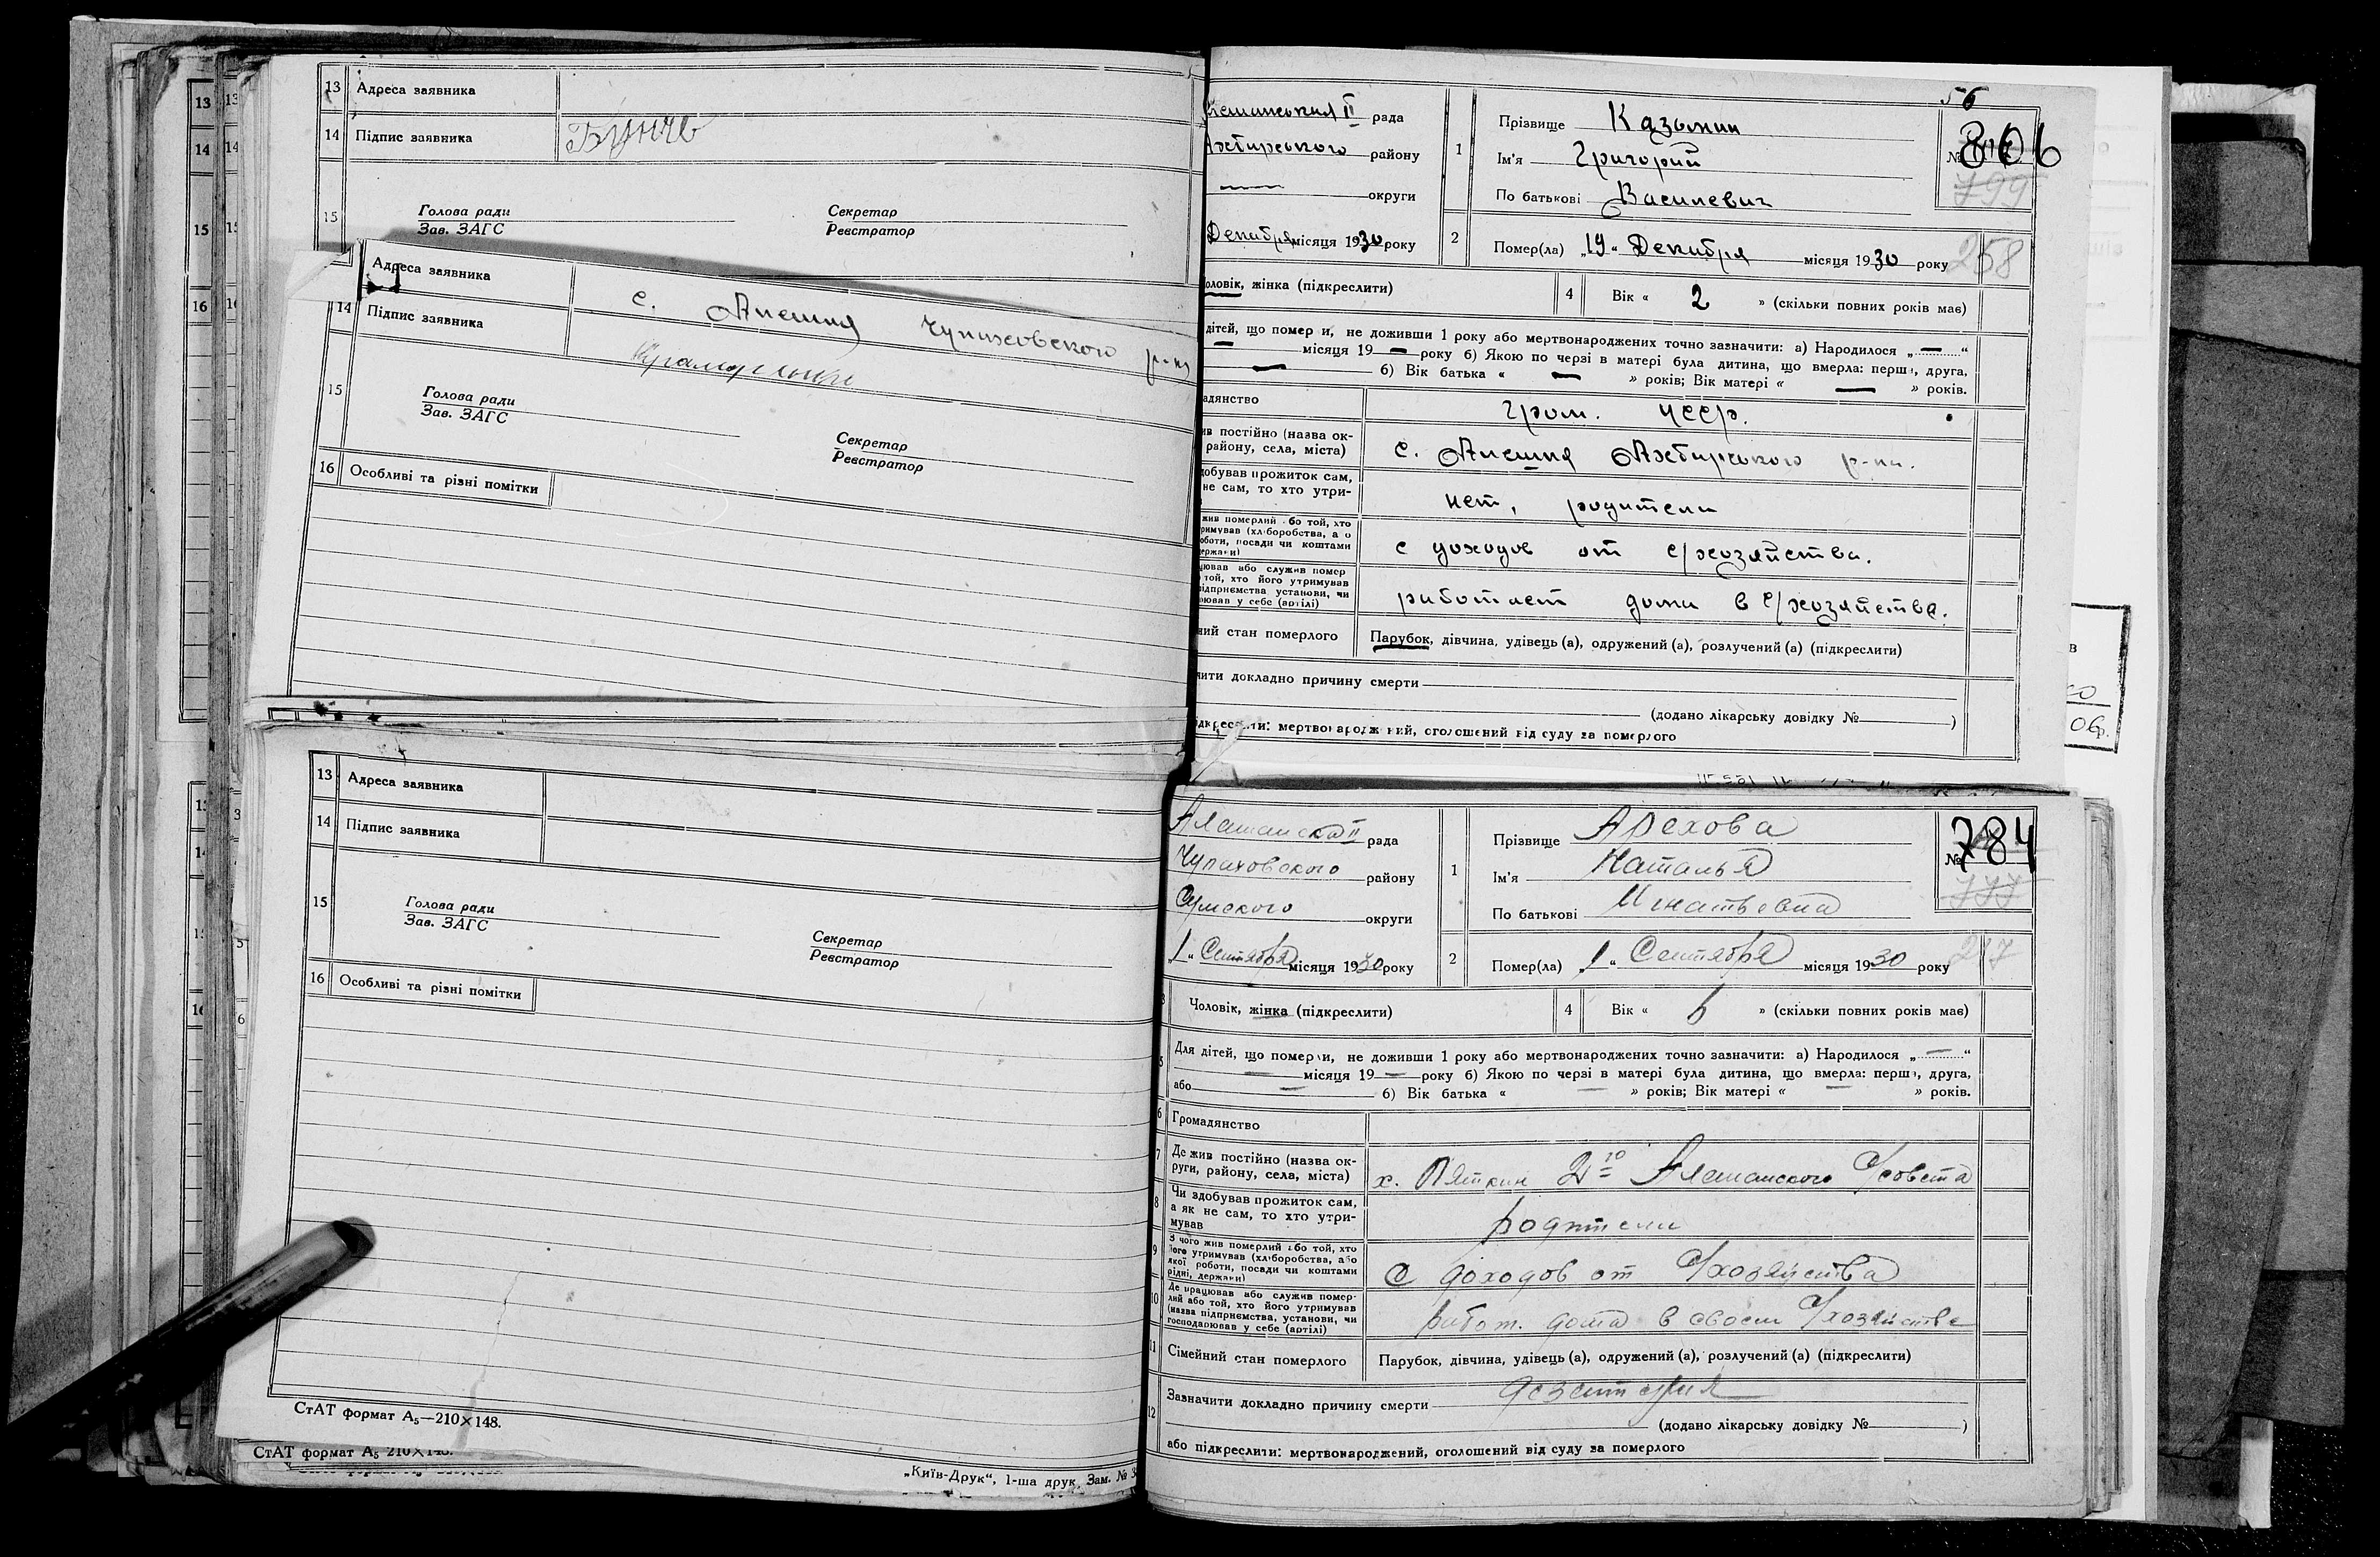 13 Адреса заявника
14 Підпис заявника
15 Голова ради Секретар
Зав. ЗАГС Реєстратор
Адреса заявника с. Алешня Чупаховского р-на
14 Підпис заявника
15 Голова ради
Зав. ЗАГС
Секретар
Реєстратор
16 Особливі та різні помітки
13 Адреса заявника
14 Підпис заявника
15 Голова ради
Зав. ЗАГС
Секретар
Реєстратор
16 Особливі та різні помітки
СтАТ формат А5—210×148.
СтАТ формат А5 210×148.
„Київ-Друк“, 1-ша друк. Зам. №
56
II рада
Ахтирського району
— округи
Декабря місяця 1930 року
1 Прізвище Казьмин
Ім'я Григорий
По батькові Василевич
№ 806
799
2 Помер(ла) „19“ Декабря місяця 1930 року
258
оловік, жінка (підкреслити) 4 Вік « 2 » (скільки повних років має)
дітей, що померли, не доживши 1 року або мертвонароджених точно зазначити: а) Народилося „—“
— місяця 19— року б) Якою по черзі в матері була дитина, що вмерла: перша, друга,
— б) Вік батька « — » років; Вік матері « — » років.
адянство гром. УССР.
ив постійно (назва ок-
району, села, міста) с. Алешня Ахтирського р-на.
добував прожиток сам,
не сам, то хто утри- нет, родители
жив померлий або той, хто
римував (хліборобства, або
оботи, посади чи коштами
держави) с доходов от с/хозяйства.
цював або служив помер
той, хто його утримував
підприємства установи, чи
рював у себе (артілі) работает дома в с/хозяйства.
ний стан померлого Парубок, дівчина, удівець (а), одружений (а), розлучений (а) (підкреслити)
чити докладно причину смерти
(додано лікарську довідку № )
ідкреслити: мертвонароджений, оголошений від суду за померлого
Алешанска II рада
Чупаховского району
Сумского округи
„1“ Сентября місяця 1930 року
1 Прізвище Арехова
Ім'я Наталья
По батькові Игнатьевна
№ 784
777
2 Помер(ла) „1“ Сентября місяця 1930 року
217
3 Чоловік, жінка (підкреслити) 4 Вік « 6 » (скільки повних років має)
5 Для дітей, що померли, не доживши 1 року або мертвонароджених точно зазначити: а) Народилося „—“
— місяця 19— року б) Якою по черзі в матері була дитина, що вмерла: перша, друга,
або — б) Вік батька « — » років; Вік матері « — » років.
6 Громадянство
7 Де жив постійно (назва ок-
руги, району, села, міста) х. Пяткин 2го Алешанского С/совета
8 Чи здобував прожиток сам,
а як не сам, то хто утри-
мував родители
9 З чого жив померлий або той, хто
його утримував (хліборобства, або
якої роботи, посади чи коштами
рідні, держави) С доходов от С/хозяйства
10 Де працював або служив помер-
лий або той, хто його утримував
(назва підприємства, установи, чи
господарював у себе (артілі) работ. дома в своем С/хозяйстве
11 Сімейний стан померлого Парубок, дівчина, удівець (а), одружений (а), розлучений (а) (підкреслити)
12 Зазначити докладно причину смерти дезентерия
(додано лікарську довідку № )
або підкреслити: мертвонароджений, оголошений від суду за померлого